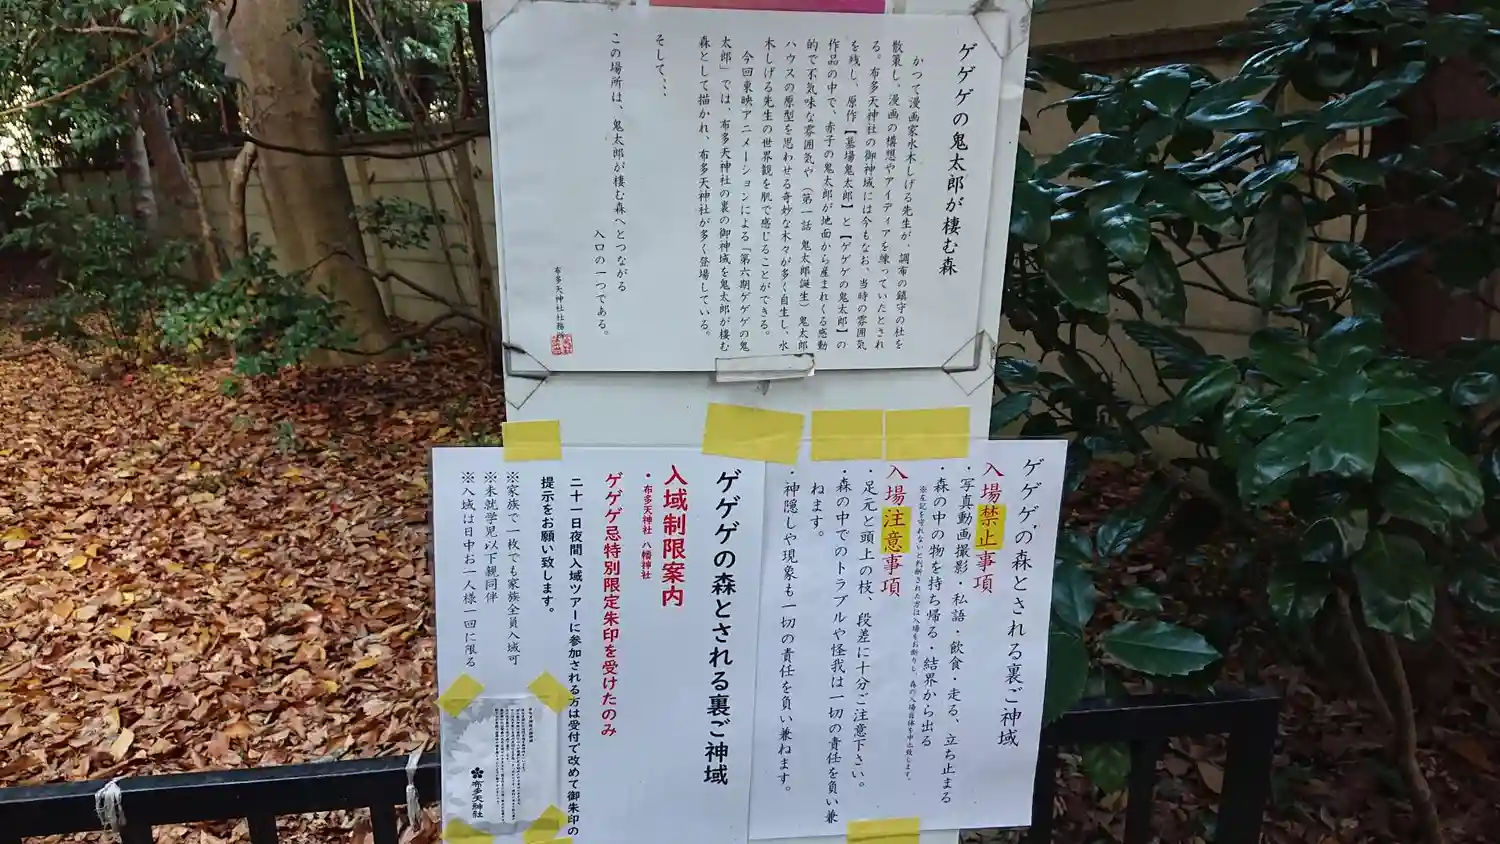 ゲゲゲの鬼太郎が棲む森
かつて漫画家水木しげる先生が、調布の鎮守の杜を
散策し、漫画の構想やアイディアを練っていたとされ
る。布多天神社の御神域には今もなお、当時の雰囲気
を残し、原作【墓場鬼太郎】と【ゲゲゲの鬼太郎】の
作品の中で、赤子の鬼太郎が地面から産まれくる感動
的で不気味な雰囲気や（第一話 鬼太郎誕生）鬼太郎
ハウスの原型を思わせる奇妙な木々が多く自生し、水
木しげる先生の世界観を肌で感じることができる。
今回東映アニメーションによる「第六期ゲゲゲの鬼
太郎」では、布多天神社の裏の御神域を鬼太郎が棲む
森として描かれ、布多天神社が多く登場している。
そして、、、
この場所は、鬼太郎が棲む森へとつながる
入口の一つである。
布多天神社社務所
ゲゲゲの森とされる裏ご神域
入場禁止事項
・写真動画撮影・私語・飲食・走る、立ち止まる
・森の中の物を持ち帰る・結界から出る
※左記を守れないと判断された方は入場をお断りし、森の入場自体を中止致します。
入場注意事項
・足元と頭上の枝、段差に十分ご注意下さい。
・森の中でのトラブルや怪我は一切の責任を負い兼
ねます。
・神隠しや現象も一切の責任を負い兼ねます。
ゲゲゲの森とされる裏ご神域
入域制限案内
・布多天神社 八幡神社
ゲゲゲ忌特別限定朱印を受けたのみ
二十一日夜間入域ツアーに参加される方は受付で改めて御朱印の
提示をお願い致します。
※家族で一枚でも家族全員入域可
※未就学児以下親同伴
※入域は日中お一人様一回に限る
布多天神社